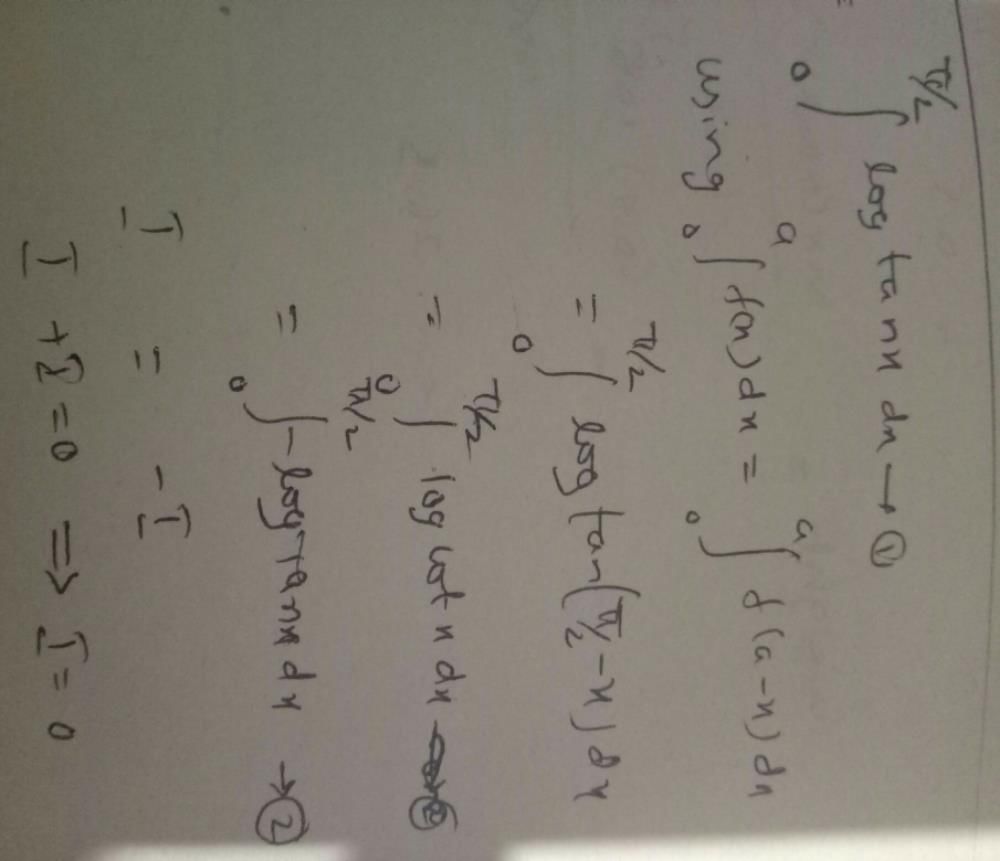 = ∫₀^(π/2) log tanx dx → ①
using ∫₀^a f(x)dx = ∫₀^a f(a-x)dx
= ∫₀^(π/2) log tan(π/2-x)dx
= ∫₀^(π/2) log cot x dx
= ∫₀^(π/2) -log tanx dx → ②
I = -I
I + I = 0 ⇒ I = 0